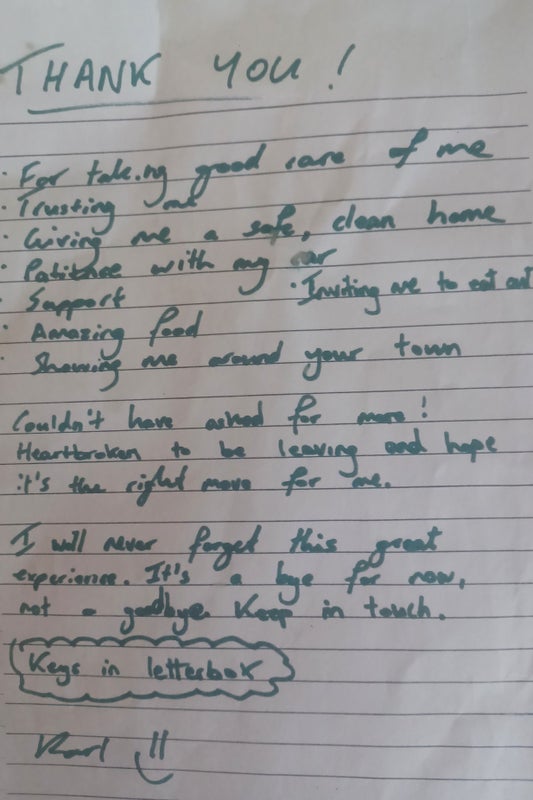 THANK YOU!
· For taking good care of me
· Trusting me
· Giving me a safe, clean home
· Patience with my car
· Support · Inviting me to eat out
· Amazing food
· Showing me around your town
Couldn't have asked for more!
Heartbroken to be leaving and hope
it's the right move for me.
I will never forget this great
experience. It's a bye for now,
not a goodbye. Keep in touch.
Keys in letterbox
Karl